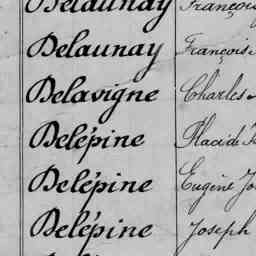 Delaunay François
Delaunay François
Delavigne Charles
Delépine Placide
Delépine Eugène
Delépine Joseph